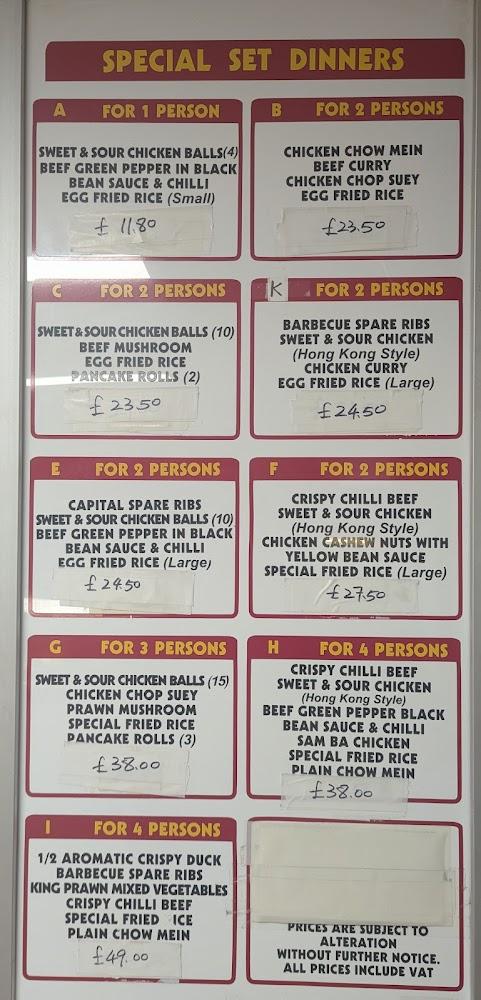 SPECIAL SET DINNERS
A FOR 1 PERSON
SWEET & SOUR CHICKEN BALLS(4)
BEEF GREEN PEPPER IN BLACK
BEAN SAUCE & CHILLI
EGG FRIED RICE (Small)
£ 11.80
B FOR 2 PERSONS
CHICKEN CHOW MEIN
BEEF CURRY
CHICKEN CHOP SUEY
EGG FRIED RICE
£23.50
C FOR 2 PERSONS
SWEET & SOUR CHICKEN BALLS (10)
BEEF MUSHROOM
EGG FRIED RICE
PANCAKE ROLLS (2)
£ 23.50
K FOR 2 PERSONS
BARBECUE SPARE RIBS
SWEET & SOUR CHICKEN
(Hong Kong Style)
CHICKEN CURRY
EGG FRIED RICE (Large)
£24.50
E FOR 2 PERSONS
CAPITAL SPARE RIBS
SWEET & SOUR CHICKEN BALLS (10)
BEEF GREEN PEPPER IN BLACK
BEAN SAUCE & CHILLI
EGG FRIED RICE (Large)
£24.50
F FOR 2 PERSONS
CRISPY CHILLI BEEF
SWEET & SOUR CHICKEN
(Hong Kong Style)
CHICKEN CASHEW NUTS WITH
YELLOW BEAN SAUCE
SPECIAL FRIED RICE (Large)
£27.50
G FOR 3 PERSONS
SWEET & SOUR CHICKEN BALLS (15)
CHICKEN CHOP SUEY
PRAWN MUSHROOM
SPECIAL FRIED RICE
PANCAKE ROLLS (3)
£38.00
H FOR 4 PERSONS
CRISPY CHILLI BEEF
SWEET & SOUR CHICKEN
(Hong Kong Style)
BEEF GREEN PEPPER BLACK
BEAN SAUCE & CHILLI
SAM BA CHICKEN
SPECIAL FRIED RICE
PLAIN CHOW MEIN
£38.00
I FOR 4 PERSONS
1/2 AROMATIC CRISPY DUCK
BARBECUE SPARE RIBS
KING PRAWN MIXED VEGETABLES
CRISPY CHILLI BEEF
SPECIAL FRIED ICE
PLAIN CHOW MEIN
£49.00
PRICES ARE SUBJECT TO
ALTERATION
WITHOUT FURTHER NOTICE.
ALL PRICES INCLUDE VAT